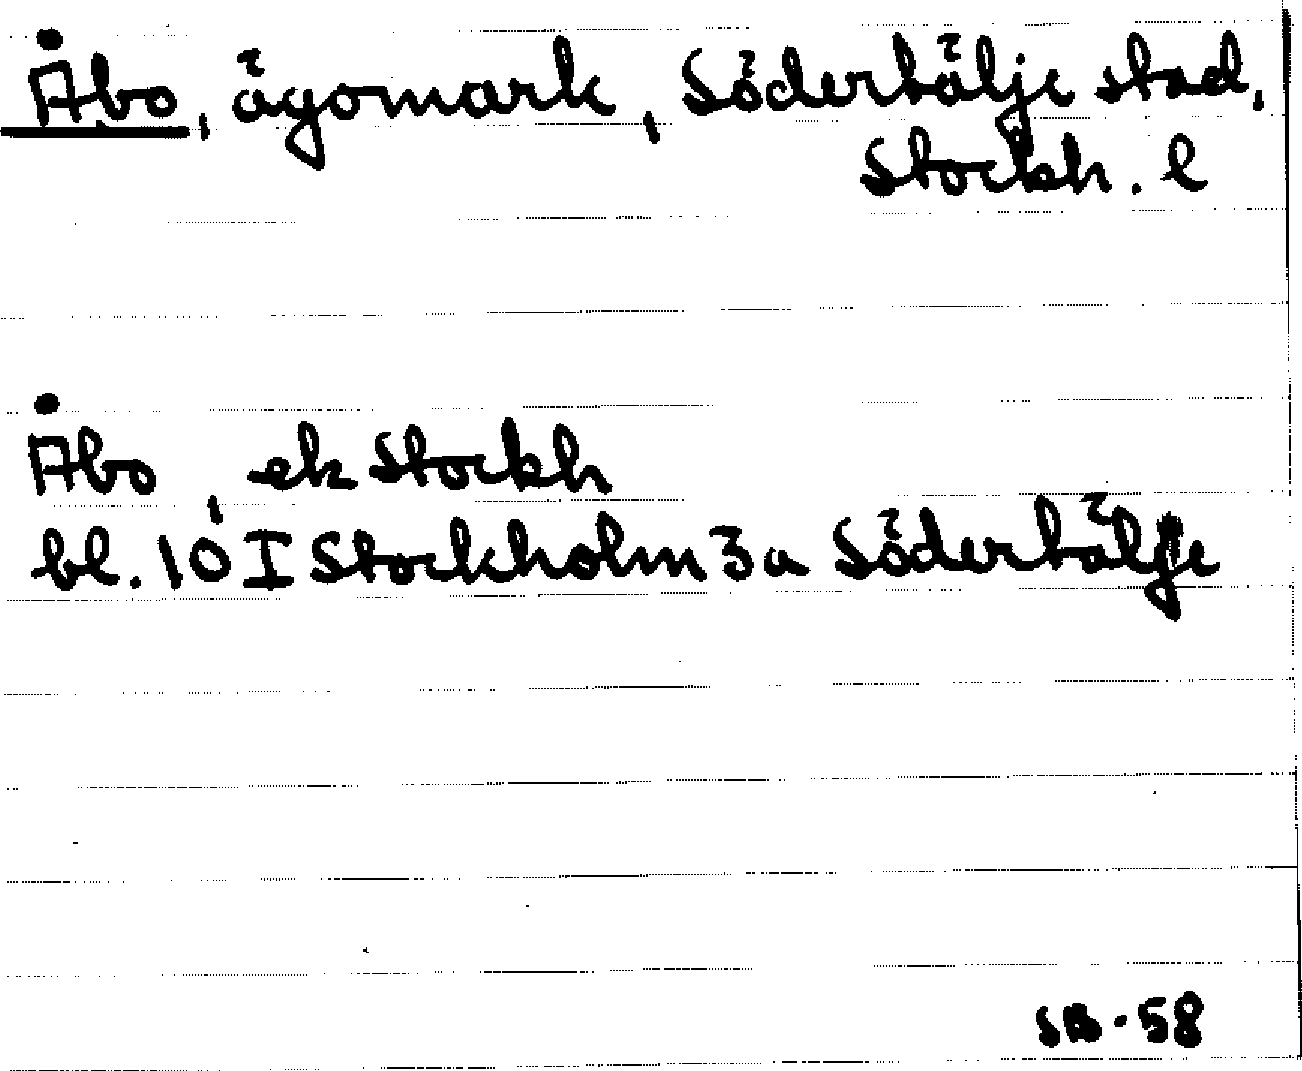 Åbo, ägomark, Södertälje stad,
Stockh. l
Åbo, ek Stockh
bl. 10 I Stockholm 3a Södertälje
SB-58